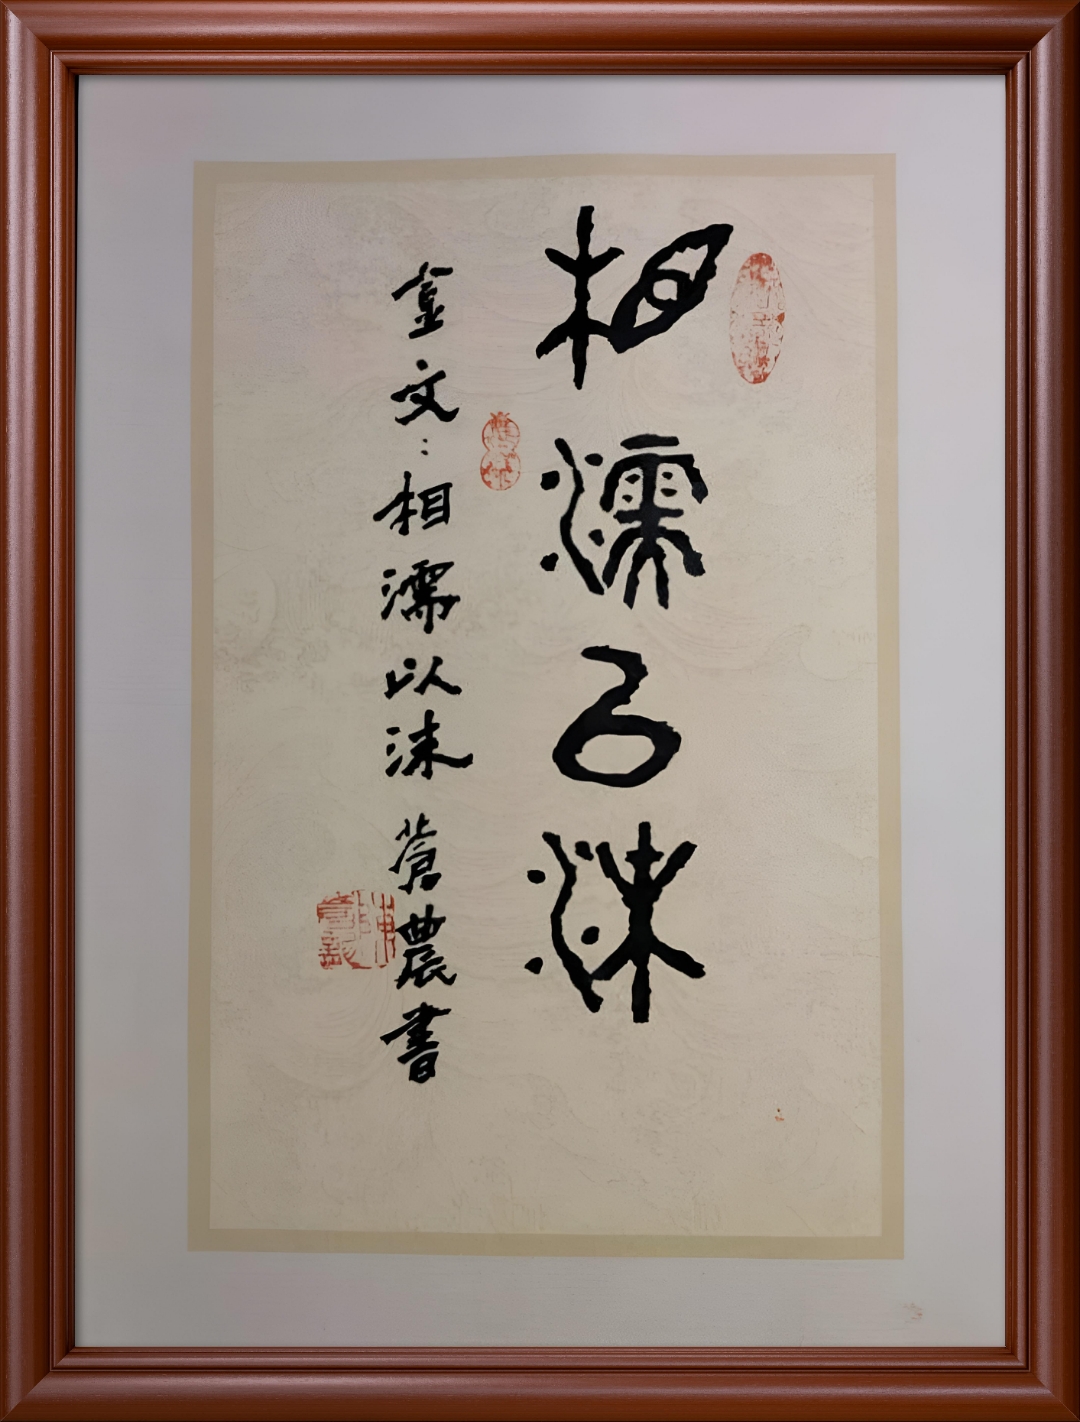 相濡以沬
金文：相濡以沫 蒼農書